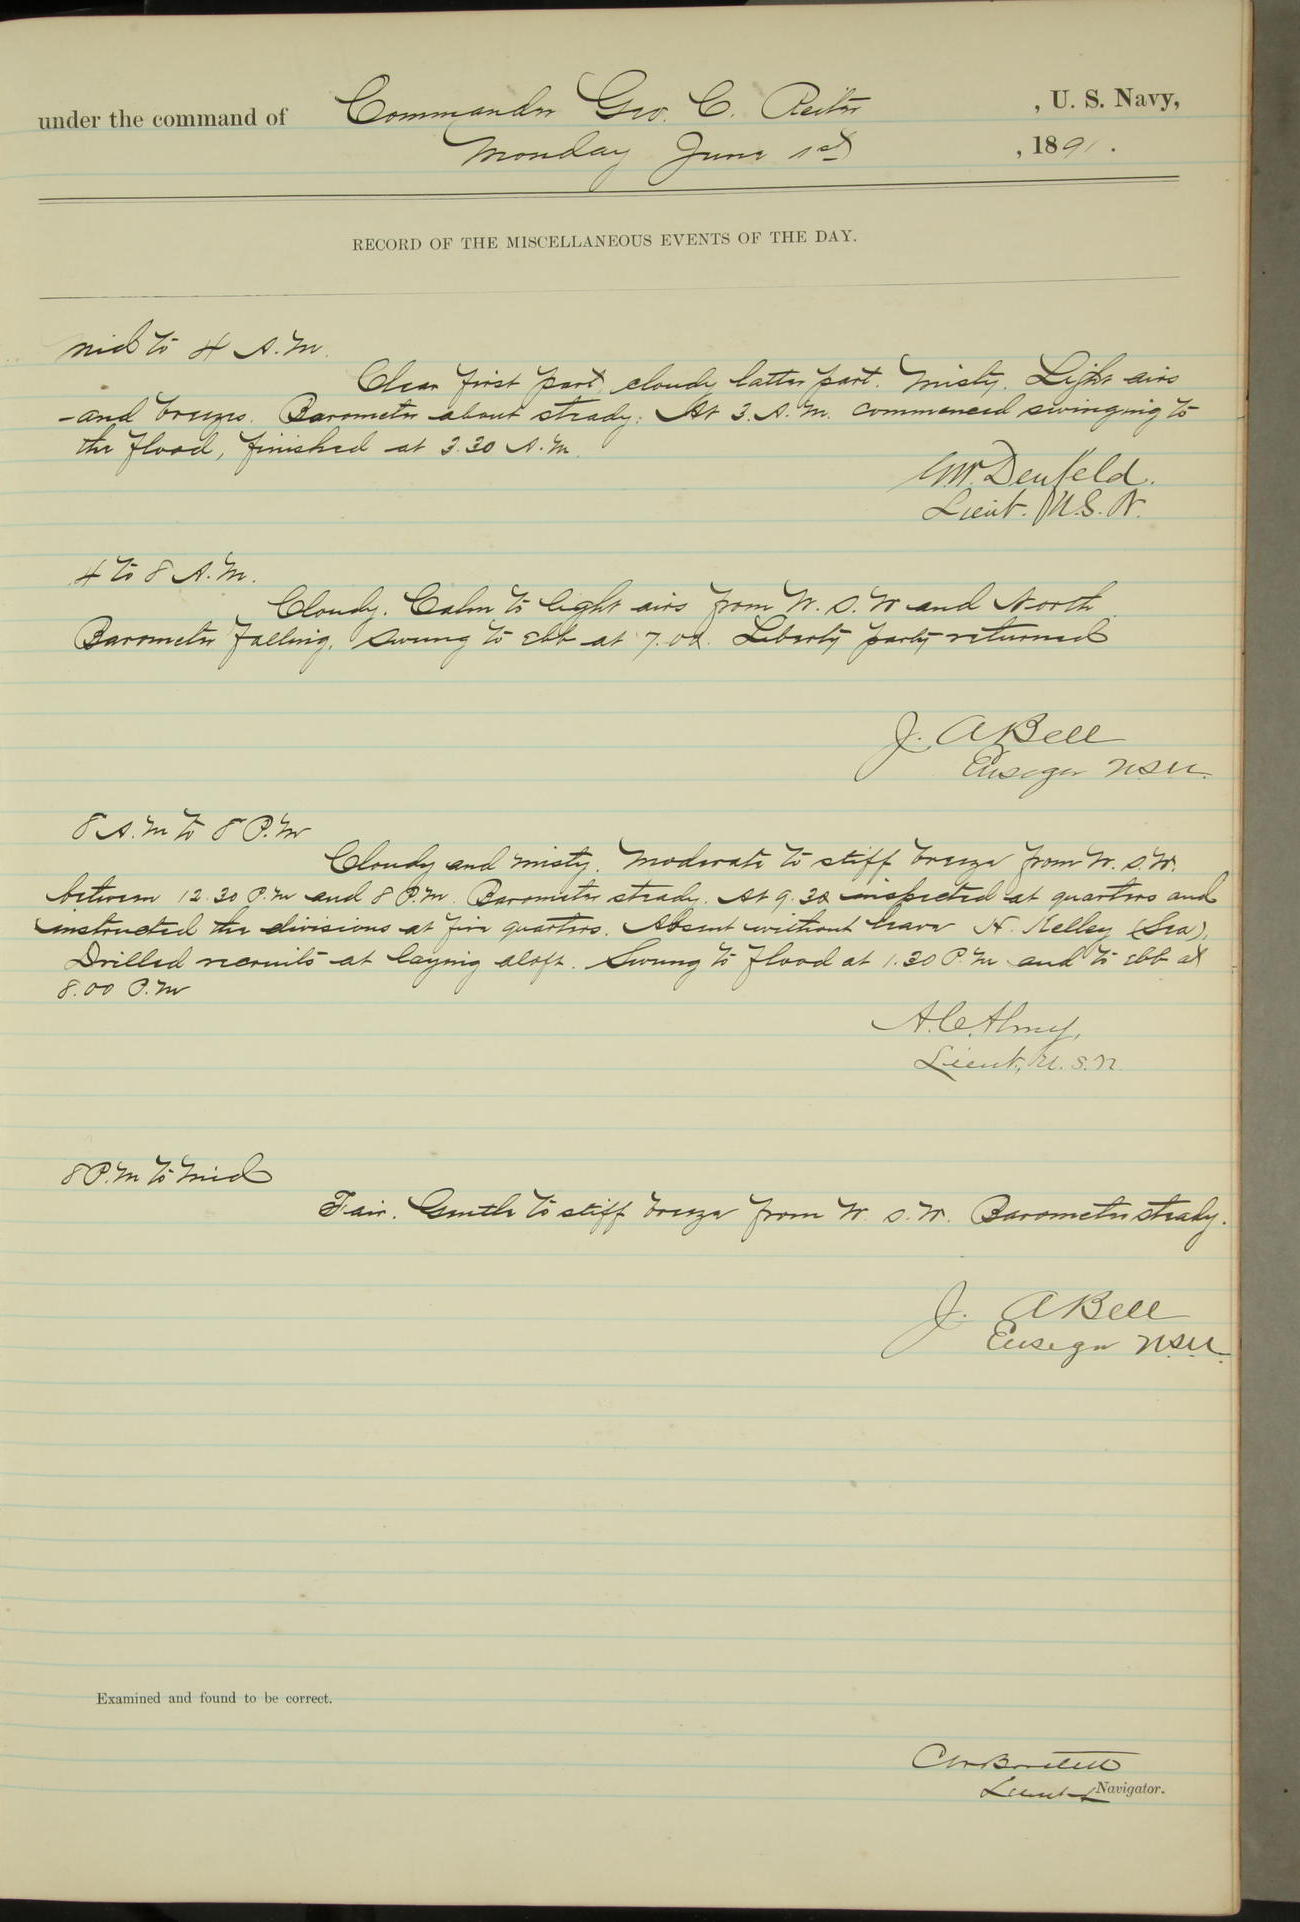 under the command of Commander Geo. C. Reiter , U. S. Navy,
Monday June 1st , 1891.
RECORD OF THE MISCELLANEOUS EVENTS OF THE DAY.
Mid to 4 A.M.
Clear first part, cloudy latter part. Misty. Light airs
and breezes. Barometer about steady. At 3. A.M. commenced swinging to
the flood, finished at 3.30 A.M.
G.W. Denfeld.
Lieut. U.S.N.
4 to 8 A.M.
Cloudy. Calm to light airs from W.S.W and North
Barometer falling. Swung to ebb at 7.00. Liberty party returned
J. A Bell
Ensign USN.
8 A.M to 8 P.M
Cloudy and misty. Moderate to stiff breeze from W.S.W.
between 12.30 P.M and 8 P.M. Barometer steady. At 9.30 inspected at quarters and
instructed the divisions at fire quarters. Absent without leave H. Kelley (Sea).
Drilled recruits at laying aloft. Swung to flood at 1.30 P.M and to ebb at
8.00 P.M
A.C. Almy,
Lieut, U.S.N.
8 P.M to Mid
Fair. Gentle to stiff breeze from W.S.W. Barometer steady.
J. A Bell
Ensign USN.
Examined and found to be correct.
C W Bartlett
Lieut & Navigator.